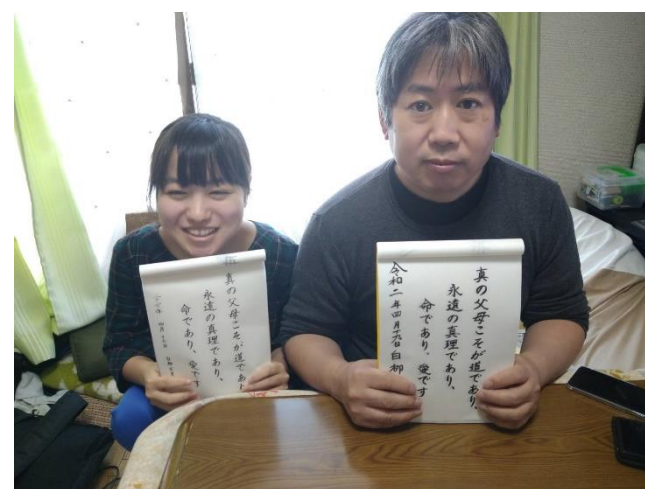 真の父母こそが道であり、
永遠の真理であり、
命であり、愛です
真の父母こそが道であり、
永遠の真理であり、
命であり、愛です
令和二年四月十九日 白柳